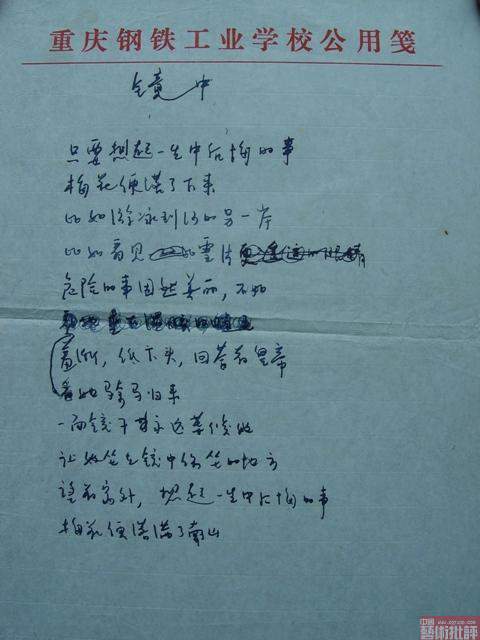 重庆钢铁工业学校公用笺
镜中
只要想起一生中后悔的事
梅花便落了下来
比如游泳到河的另一岸
比如看见雪片
危险的事固然美丽，不如
羞惭，低下头，回答着皇帝
看她骑马归来
一面镜子永远等候她
让她坐在镜中常坐的地方
望着窗外，想起一生中后悔的事
梅花便落满了南山
中國
藝術批評